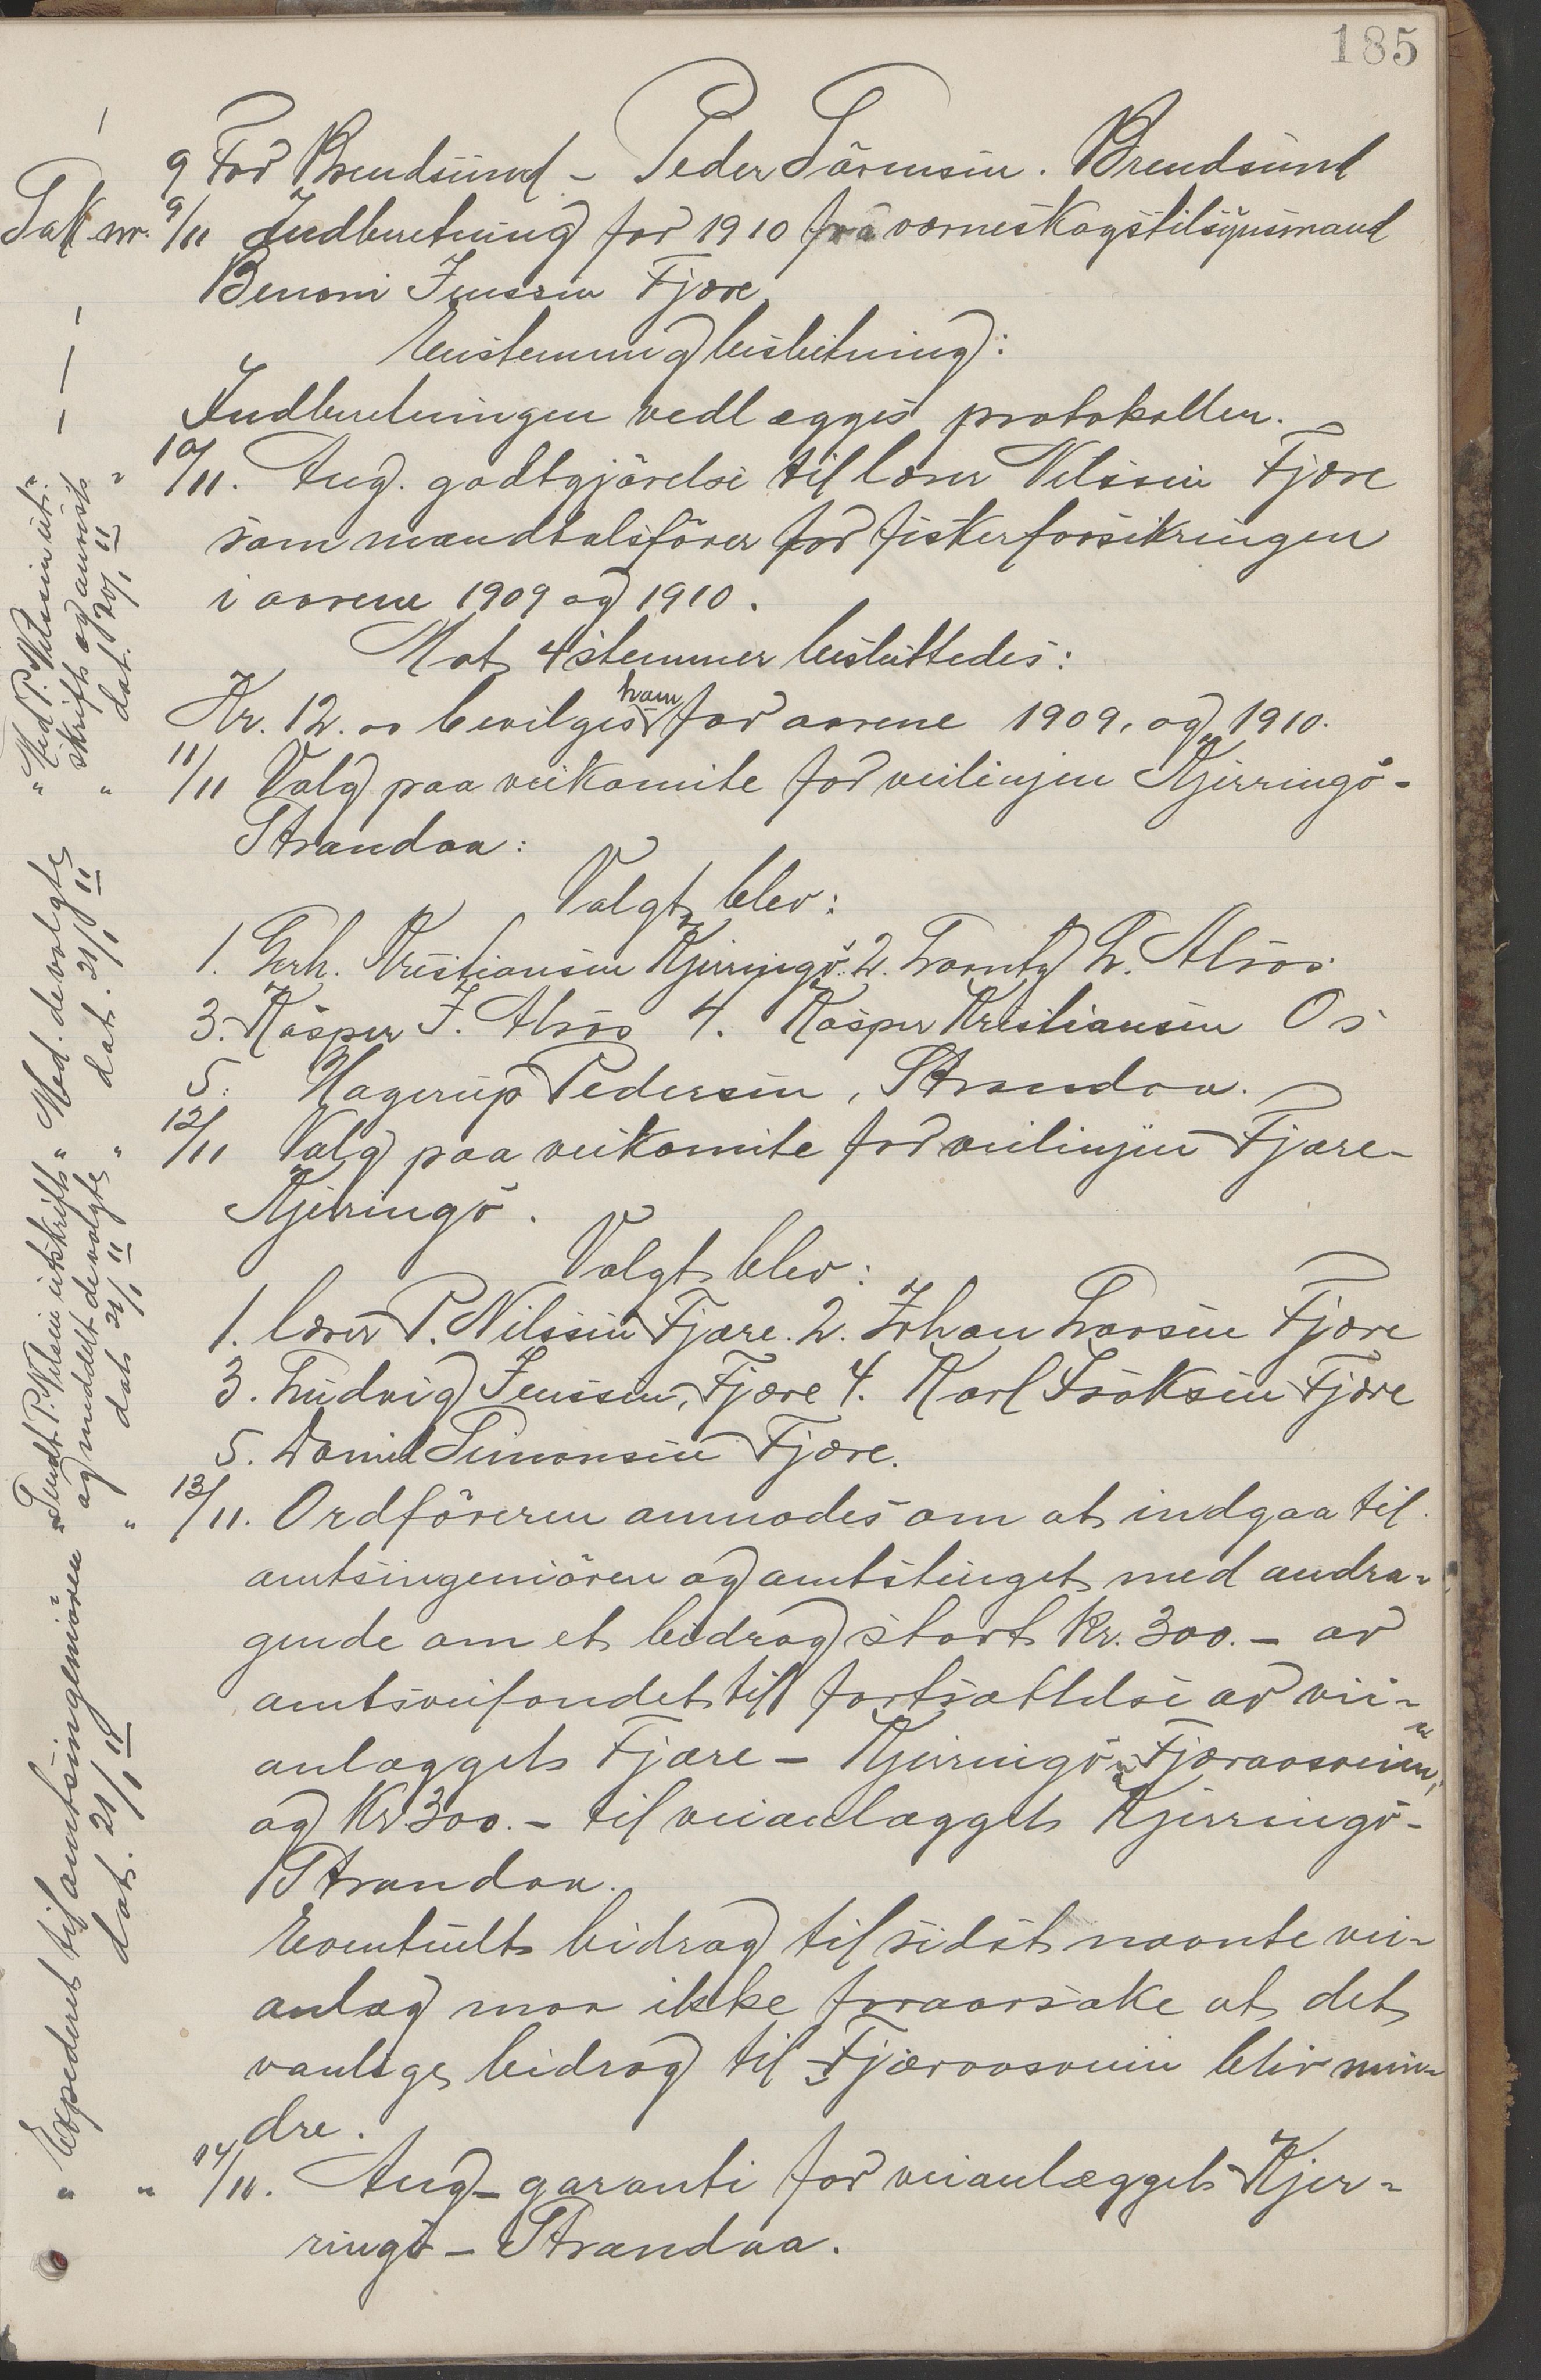 185
9 For Brendsund - Peder Sörensen. Brendsund
Sak nr. 9/11 Indberetning for 1910 fra værneskogstilsynsmand
Benoni Jenssen Fjære
Enstemmig beslutning:
Indberetningen vedlægges protokollen.
10/11. Ang. godtgjörelse til lærer Nilssen Fjære
som mandtalsförer for fiskerforsikringen
i aarene 1909 og 1910.
Mot 4 stemmer besluttedes:
Kr. 12.00 bevilges ham for aarene 1909. og 1910.
11/11 Valg paa veikomite for veilinjen Kjerringö-
Strandaa:
Valgt blev:
1. Gerh. Kristiansen Kjerringö. 2. Lorntz L. Alsos
3. Kasper J. Alsos 4. Kasper Kristiansen Os
5. Hagerup Pedersen, Strandaa.
12/11 Valg paa veikomite for veilinjen Fjære-
Kjerringö.
Valgt blev:
1. lærer P. Nilssen Fjære. 2. Johan Larsen Fjære
3. Ludvig Jenssen, Fjære 4. Karl Isaksen Fjære
5. Daniel Simonsen Fjære.
13/11. Ordföreren anmodes om at indgaa til
amtsingeniören og amtstinget med andra-
gende om et bidrag stort Kr. 300.- av
amtsveifondet till fortsættelse av vei-
anlægget Fjære - Kjerringö "Fjæraasveien"
og Kr. 300.- til veianlægget Kjerringö-
Strandaa.
Eventuelt bidrag til sidst nævnte vei-
anlæg maa ikke foraarsake at det
vanlige bidrag til Fjæraasveien blir min-
dre.
" " 14/11. Ang. garanti for veianlægget Kjer-
ringö - Strandaa.
" Med P. Nilssen ut-
skrift og anvist
" dat. 20/1 11
" Med. de valgte
" dat. 21/1 11
" Sendt P. Nilssen utskrift
og meddelt de valgte
" dat 21/1 11
" Expederet til amtsingeniören
dat. 21/1 11